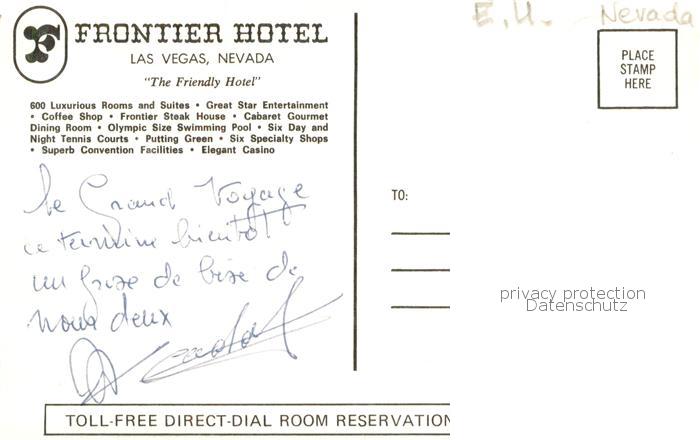 E.U. - Nevada
F
FRONTIER HOTEL
LAS VEGAS, NEVADA
"The Friendly Hotel"
600 Luxurious Rooms and Suites • Great Star Entertainment
• Coffee Shop • Frontier Steak House • Cabaret Gourmet
Dining Room • Olympic Size Swimming Pool • Six Day and
Night Tennis Courts • Putting Green • Six Specialty Shops
• Superb Convention Facilities • Elegant Casino
PLACE
STAMP
HERE
le Grand Voyage
ce termine bientot
un de bise de
nous deux
TO:
privacy protection
Datenschutz
TOLL-FREE DIRECT-DIAL ROOM RESERVATION